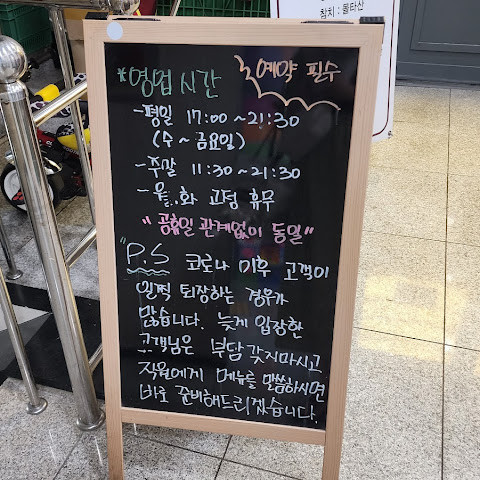 참치 : 몰타산
*영업 시간
예약 필수
-평일 17:00 ~ 21:30
(수 ~ 금요일)
-주말 11:30 ~ 21:30
-월,화 고정 휴무
"공휴일 관계없이 동일"
"P.S 코로나 이후 고객이
일찍 퇴장하는 경우가
많습니다. 늦게 입장한
고객님은 부담 갖지마시고
직원에게 메뉴를 말씀하시면
바로 준비해드리겠습니다.